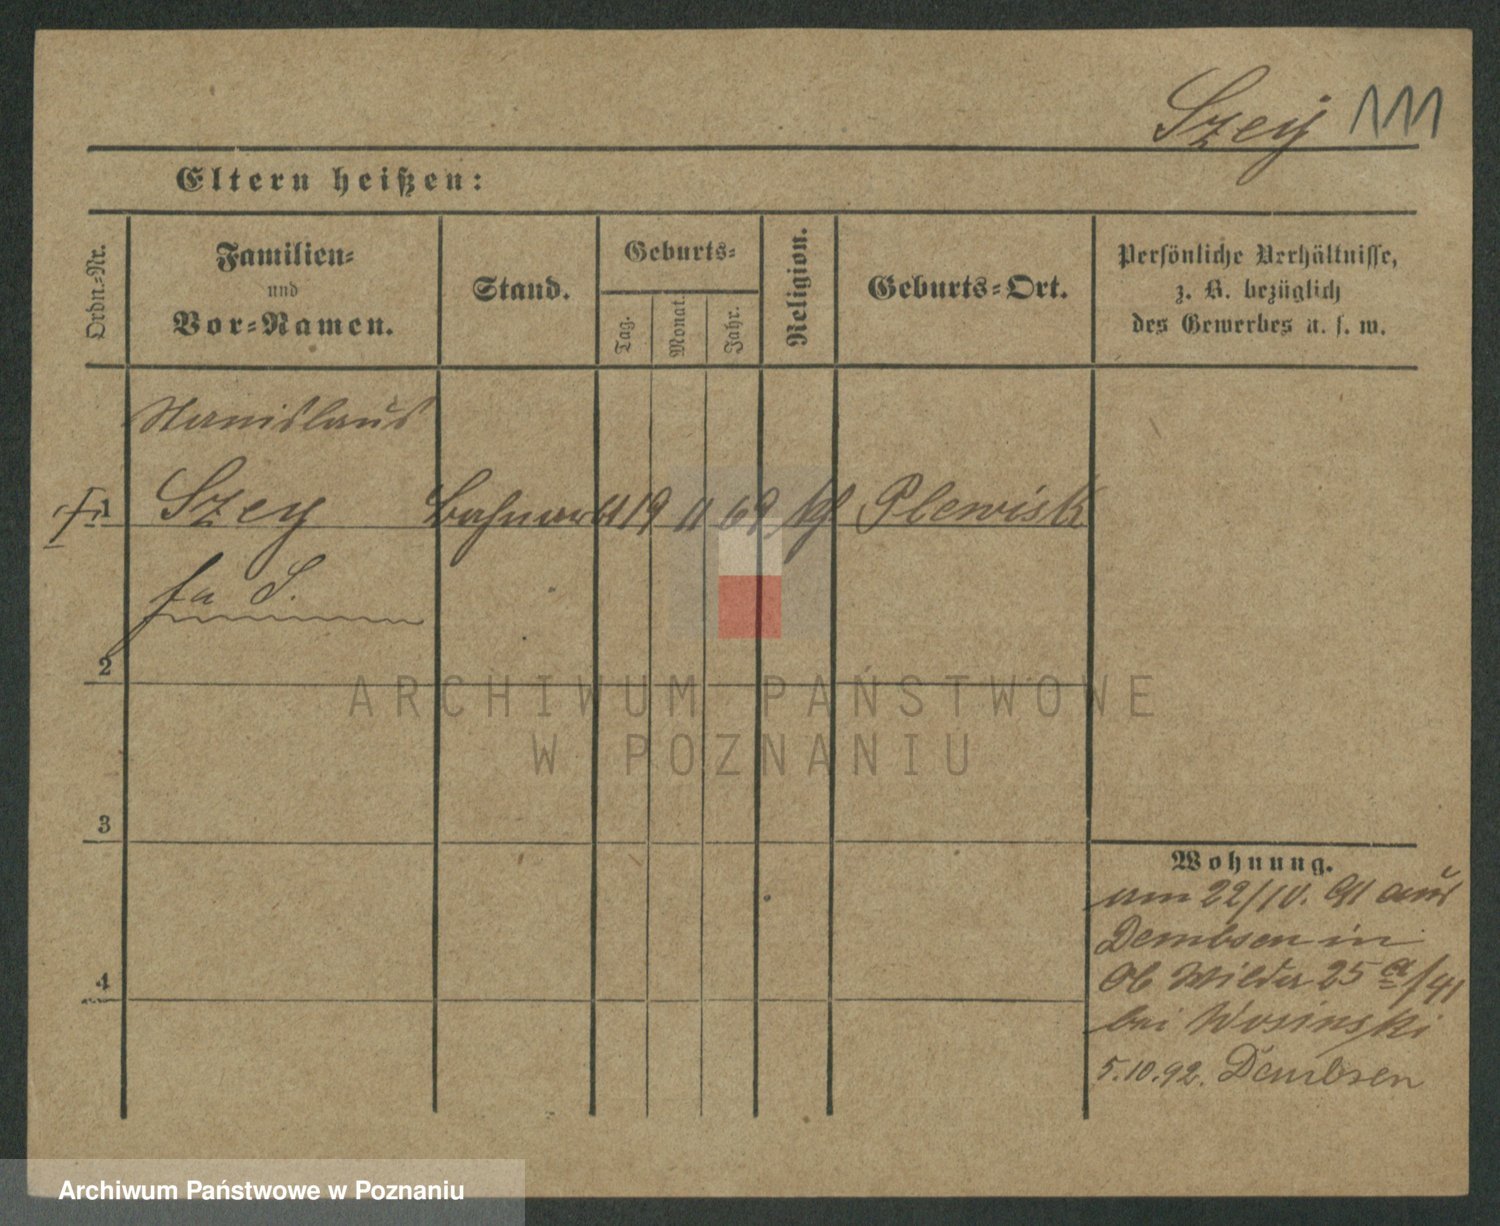 Szey 111
Eltern heißen:
Ordn.-Nr.
Familien-
und
Vor-Namen.
Stand.
Geburts-
Tag.
Monat.
Jahr.
Religion.
Geburts-Ort.
Persönliche Verhältnisse,
z. B. bezüglich
des Gewerbes u. s. w.
Stanislaus
1 Szey 19 11 69 kth Plewisk
fa S.
2
3
4
Wohnung.
am 22/10. 91 aus
Dembsen in
Ob Wilda 25 a/41
bei Wosinski
5.10.92. Dembsen
ARCHIWUM PAŃSTWOWE
W POZNANIU
Archiwum Państwowe w Poznaniu